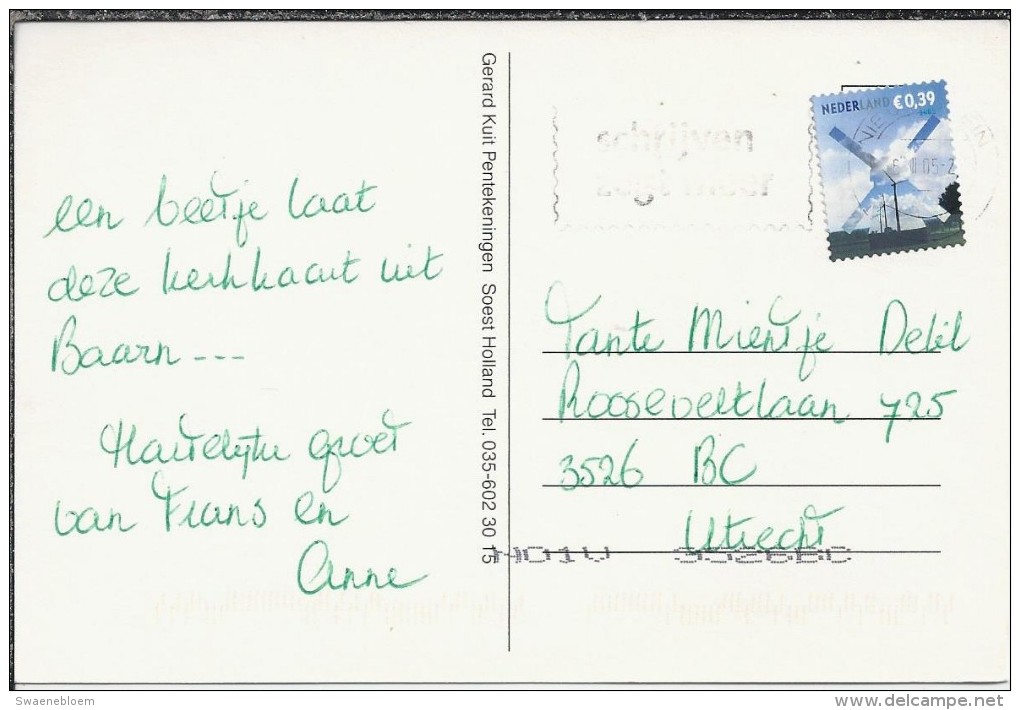 een beetje laat
deze kerkkaart uit
Baarn ---
Hartelijke groet
van Frans en
Anne
Gerard Kuit Pentekeningen Soest Holland Tel. 035-602 30 15
schrijven
NEDERLAND €0,39
Tante Mientje Debil
Rooseveltlaan 725
3526 BC
Utrecht
Swaenebloem
www.delcampe.net